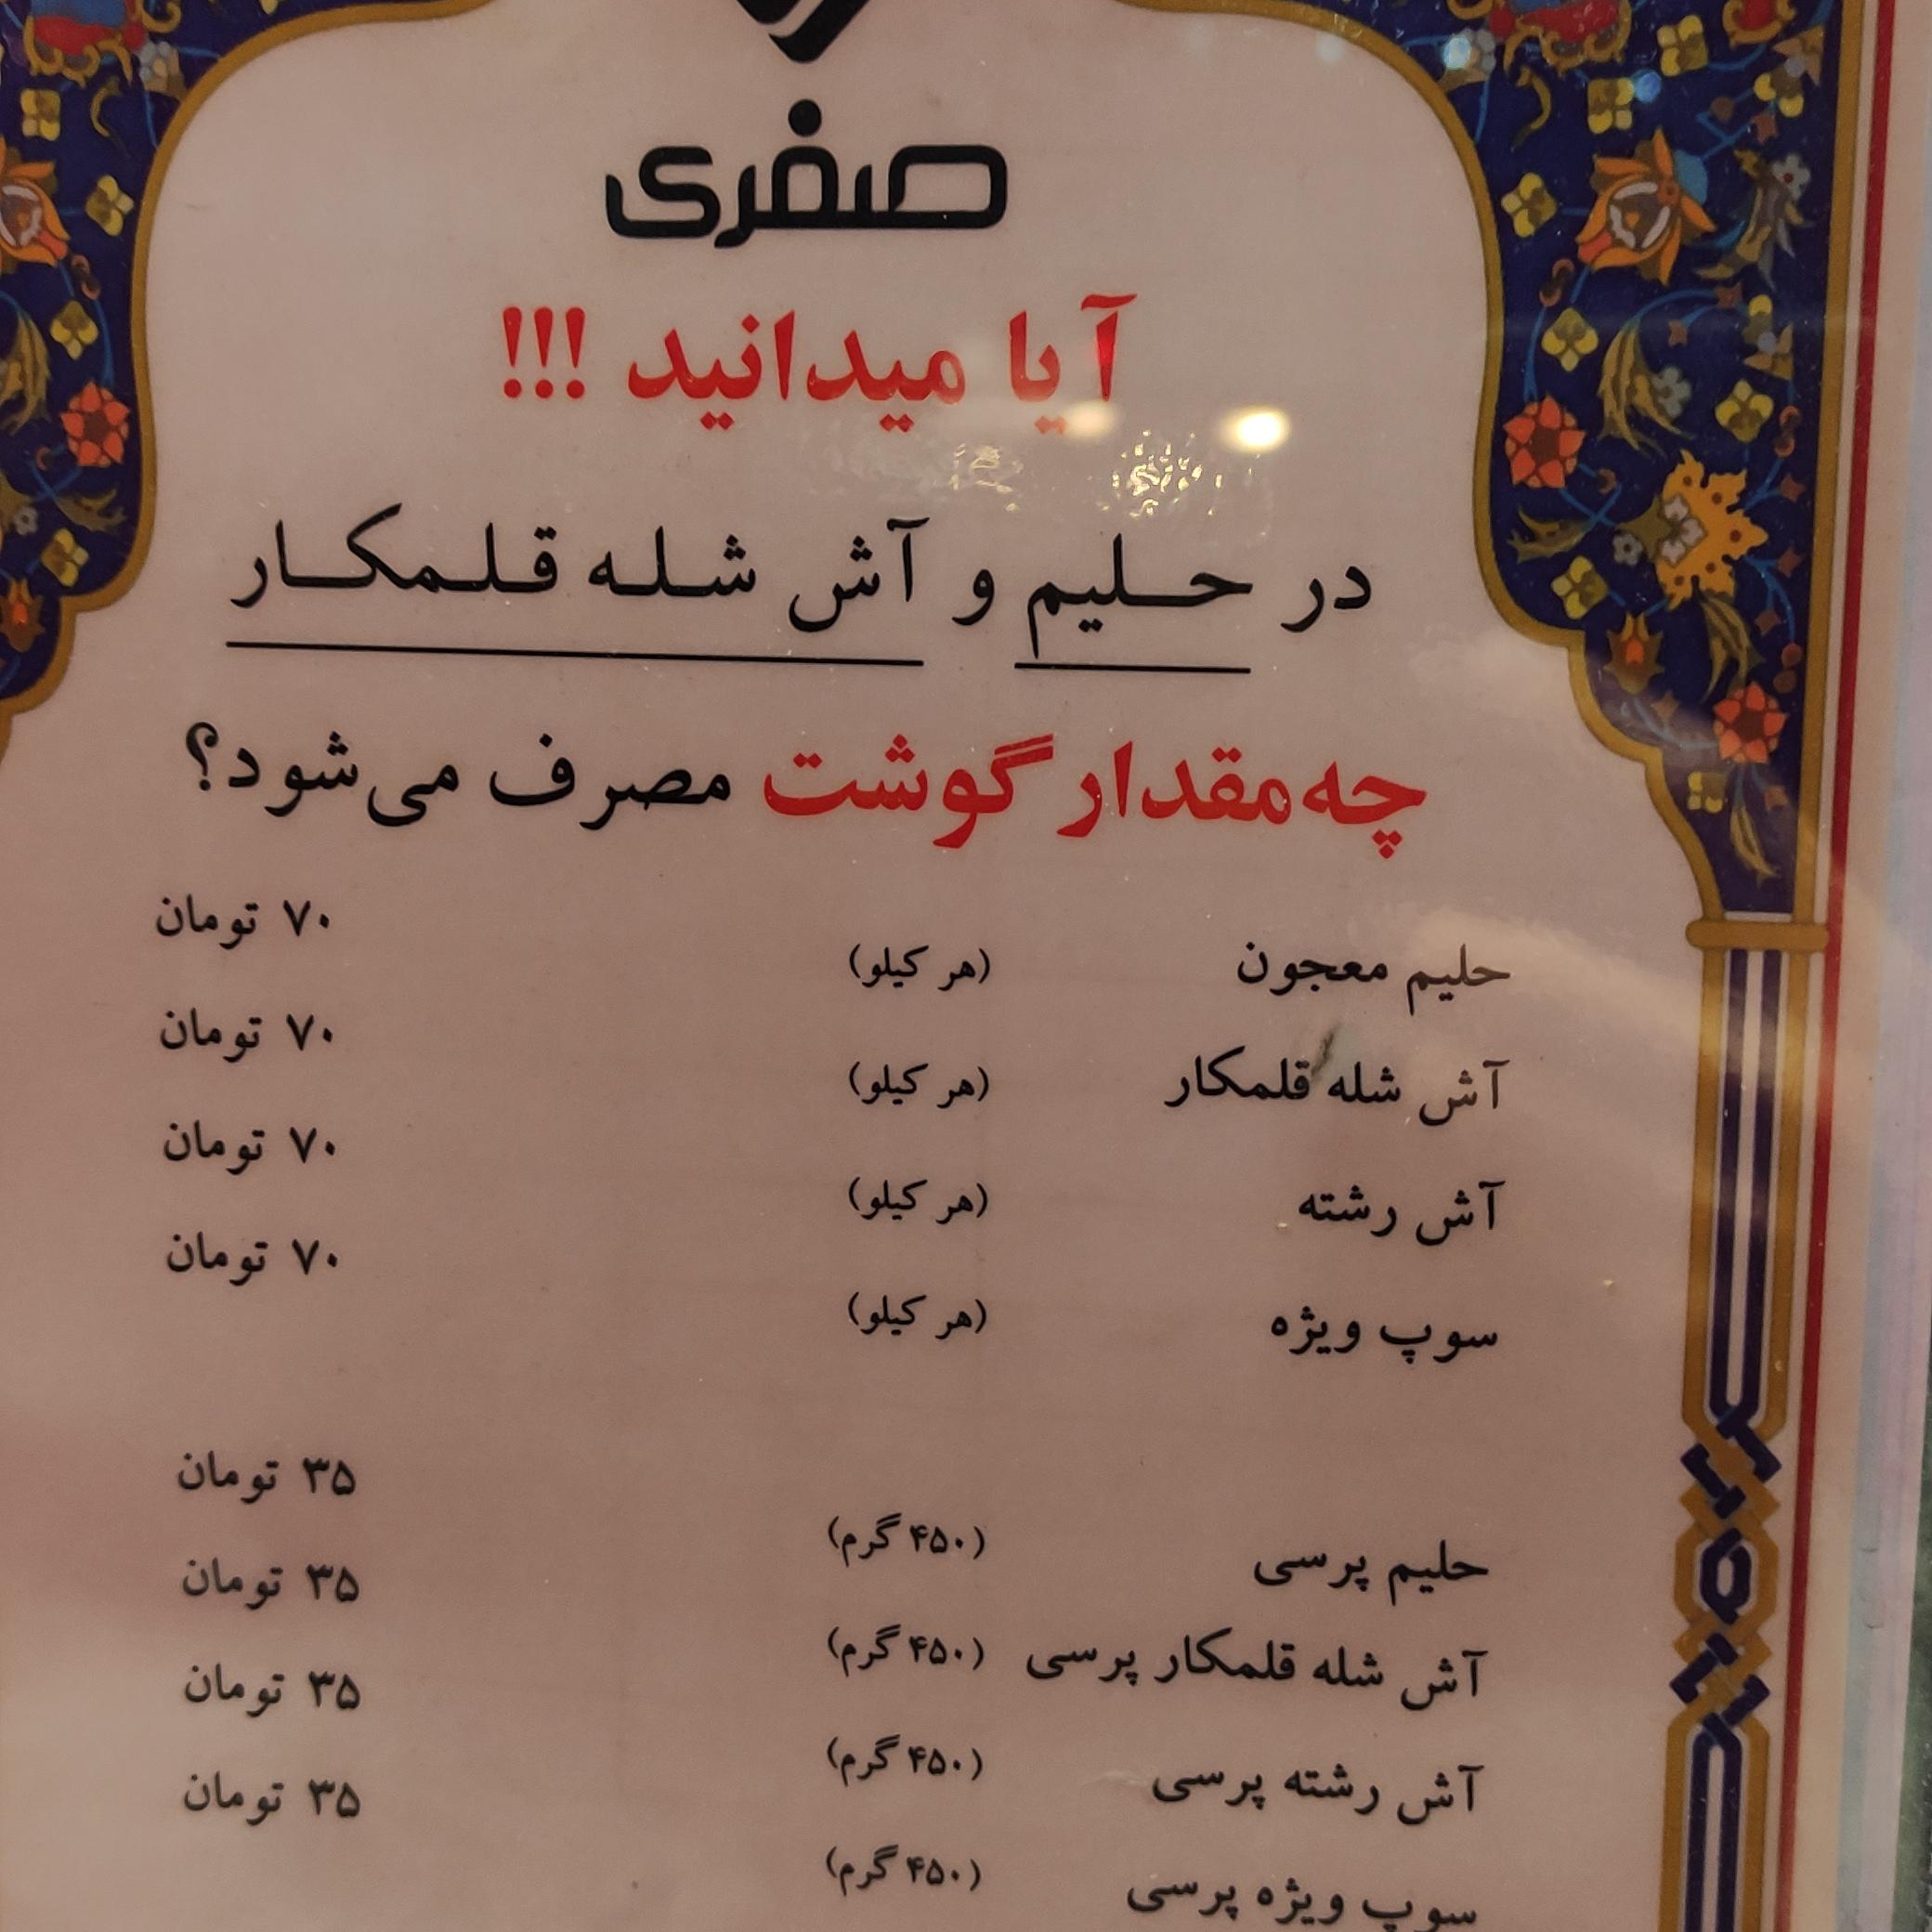 صفری
آیا میدانید !!!
در حلیم و آش شله قلمکار
چه مقدار گوشت مصرف می‌شود؟
حلیم معجون (هر کیلو) ۷۰ تومان
آش شله قلمکار (هر کیلو) ۷۰ تومان
آش رشته (هر کیلو) ۷۰ تومان
سوپ ویژه (هر کیلو) ۷۰ تومان
حلیم پرسی (۴۵۰ گرم) ۳۵ تومان
آش شله قلمکار پرسی (۴۵۰ گرم) ۳۵ تومان
آش رشته پرسی (۴۵۰ گرم) ۳۵ تومان
سوپ ویژه پرسی (۴۵۰ گرم) ۳۵ تومان